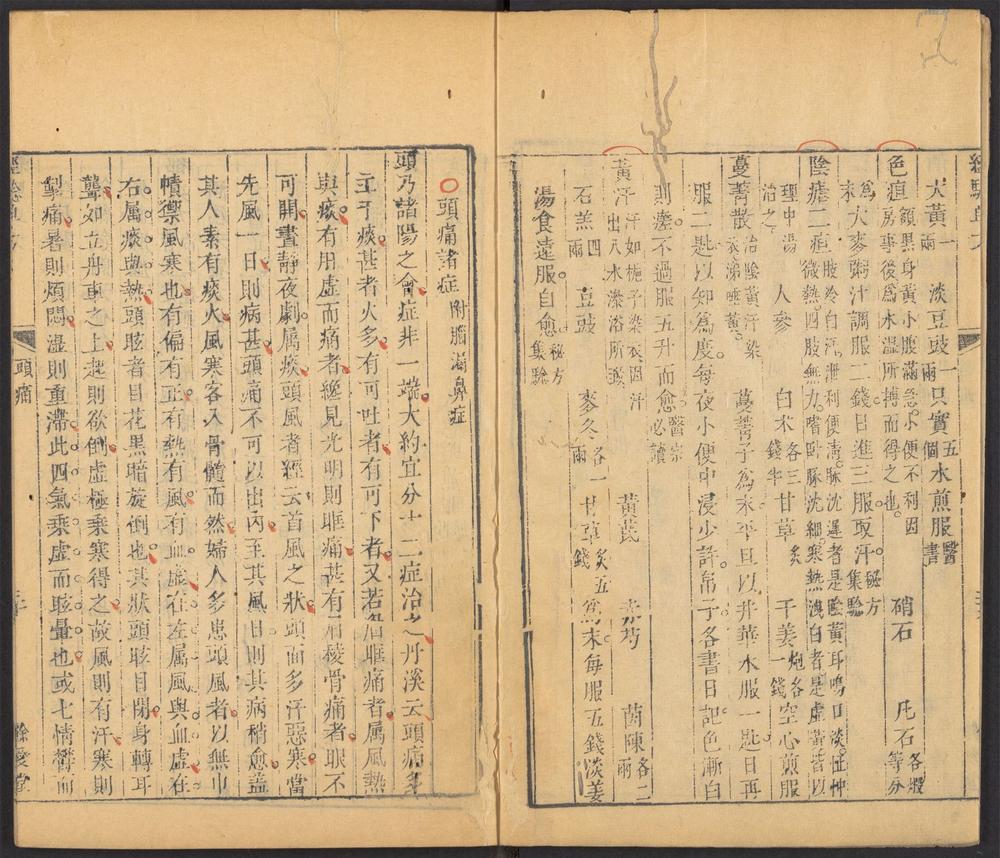 大黃一兩 淡豆豉一兩 只實五個水煎服醫書
色疸額黑身黃小腹滿急小便不利因房事後爲水濕所搏而得之也 硝石 凡石各煅等分
爲末大麥粥汁調服二錢日進三服取汗秘方集驗
陰疸二疸肢冷自汗泄利便清脉沈遲者是陰黃耳鳴口淡怔忡微熱四肢無力嗜卧脉沈細寒熱洩白者是虛黃皆以
理中湯治之 人參 白朮各三錢半甘草炙 干姜炮各一錢空心煎服
蔓菁散治陰黃汗染衣涕唾黃 蔓菁子爲末平旦以井華水服一匙日再
服二匙以知爲度每夜小便中浸少許帛子各書日記色漸白
則瘥不過服五升而愈醫宗必讀
黃汗汗如梔子染衣因汗出入水浴所致
石羔四兩 豆豉 麥冬各一兩 黃芪 赤芍 茵陳各二兩 甘草炙五錢爲末每服五錢淡姜
湯食遠服自愈秘方集驗
頭痛諸症附腦漏鼻症
頭乃諸陽之會症非一端大約宜分十二症治之丹溪云頭痛多
主于痰甚者火多有可吐者有可下者又若眉眶痛者属風熱
與痰有用虛而痛者纔見光明則眶痛甚有眉棱骨痛者眼不
可開晝靜夜劇属痰頭風者經云首風之狀頭面多汗惡寒當
先風一日則病甚頭痛不可以出內至其風日則其病稍愈盖
其人素有痰火風寒客入骨髓而然婦人多患頭風者以無巾
幘禦風寒也有偏有正有熱有風有血虛在左属風與血虛在
右属痰與熱頭眩者目花黑暗旋倒也其狀頭眩目閉身轉耳
聾如立舟車之上起則欲倒虛極乘寒得之故風則有汗寒則
掣痛暑則煩悶濕則重滯此四氣乘虛而眩暈也或七情欝而
頭痛